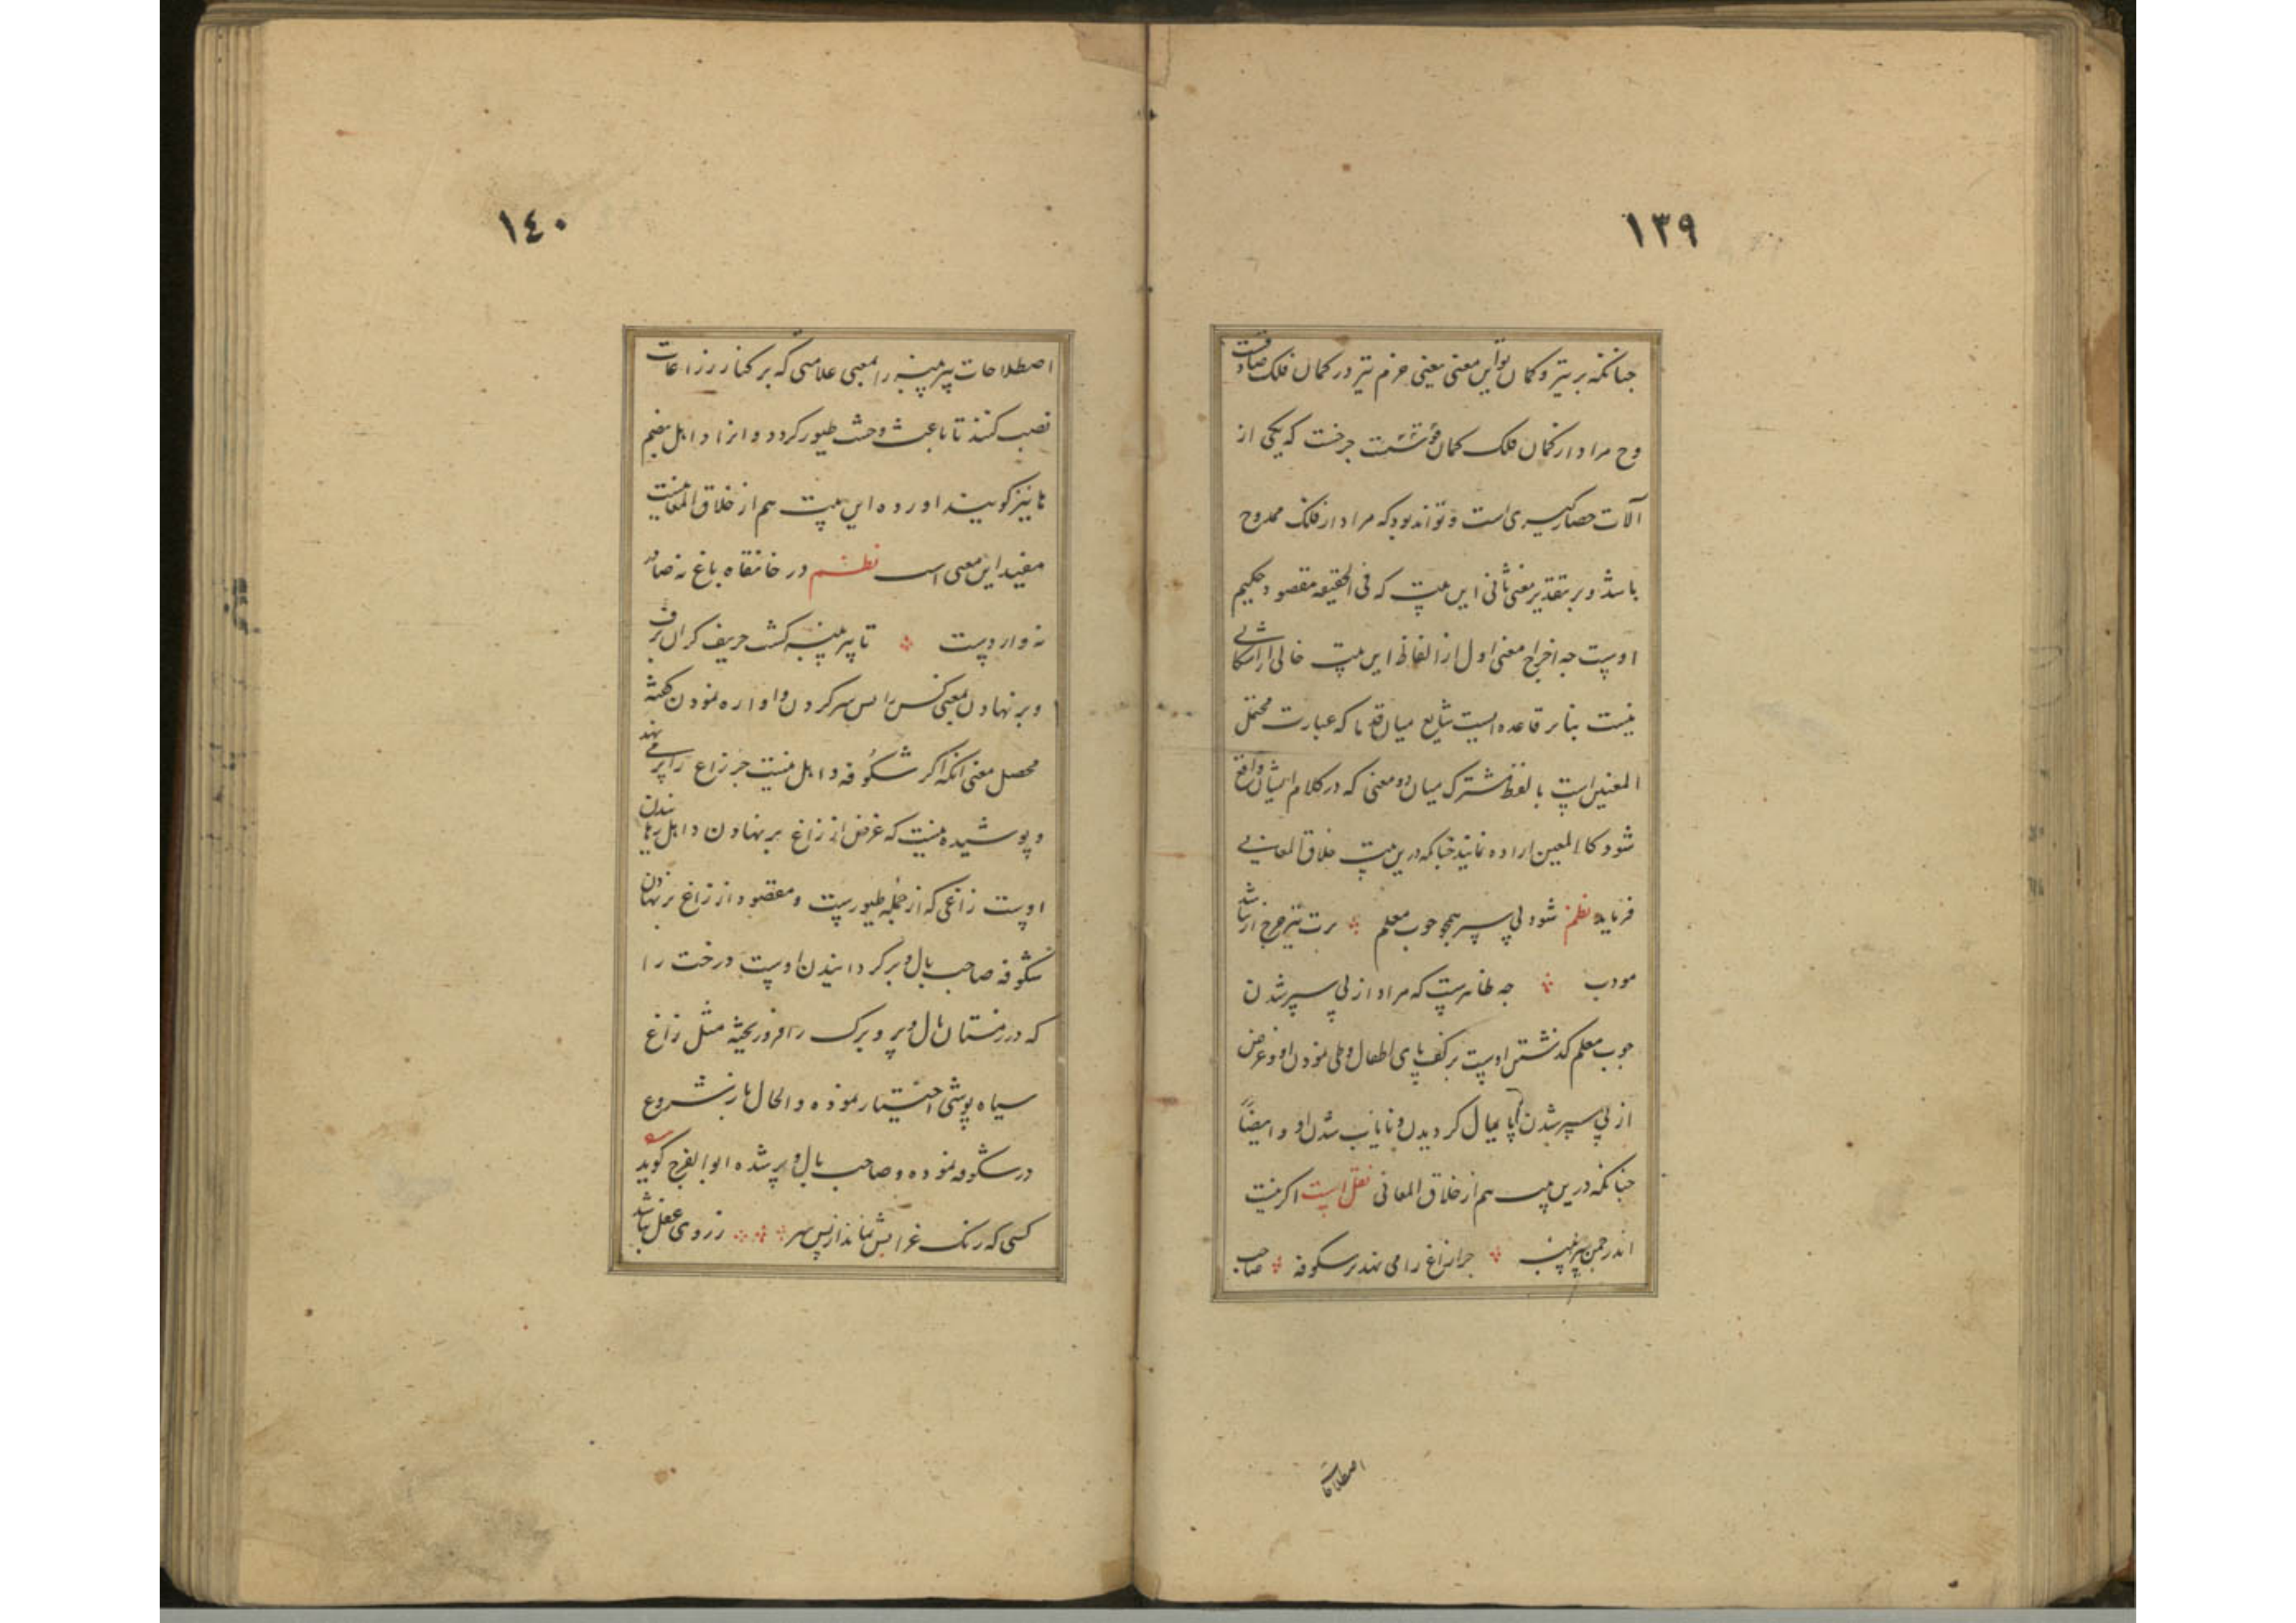 ١٣٩
چنانکه بر تیر و کمان تو این معنی یعنی حزم تیر در کمان فلک صادقست
و ح مراد از کمان فلک کمان چرخست که یکی از
آلات حصارگیری است و تواند بود که مراد از فلک ممدوح
باشد و بر تقدیر معنی ثانی این بیت که فی الحقیقه مقصود حکیم
اوست چه اخراج معنی اول از الفاظ این بیت خالی از اشکالی
نیست بنابر قاعده ایست شایع میان قدما که عبارت محتمل
المعنیین است یا لفظ مشترک میان دو معنی که در کلام ایشان واقع
شود کلا المعنیین اراده نمایند چنانکه درین بیت خلاق المعانی
فرماید نظم شود پی سپر همچو چوب معلم سرت نیز چرخ ار نباشد
مودب چه ظاهرست که مراد از پی سپر شدن
چوب معلم گذشتن اوست بر کف پای اطفال و طی نمودن او و غرض
از پی سپر شدن پایمال گردیدن و نایاب شدن او و ایضاً
چنانکه درین بیت هم از خلاق المعانی نقل است اگر نیست
اندر چمن پیر پنبه چرا زاغ را می نهد بر شکوفه صاحب
اصطلاحات
١٤٠
اصطلاحات پیر پنبه را بمعنی علامتی که بر کنار زراعات
نصب کنند تا باعث وحشت طیور گردد و انرا داهل بضم
ها نیز گویند اورده این بیت هم از خلاق المعانیست
مفید این معنی است نظم در خانقاه باغ نه صادر
نه واردست تا پیر پنبه گشت حریف گران برف
و بر نهادن بمعنی کس را پس سر کردن و اواره نمودن گفته
محصل معنی انکه اگر شکوفه داهل نیست چرا زاغ را بر می نهد
و پوشیده نیست که غرض از زاغ بر نهادن داهل رهاندن
اوست زاغی که از جمله طیورست و مقصود از زاغ بر نهادن
شکوفه صاحب بال و پر گردانیدن اوست درخت را
که در زمستان بال و پر و برگ را فرو ریخته مثل زاغ
سیاه پوشی اختیار نموده و الحال باز شروع
در شکوفه نموده و صاحب بال و پر شده ابو الفرج گوید
کسی که رنگ غرابش نماند از پس سر ز روی عقل نباشد